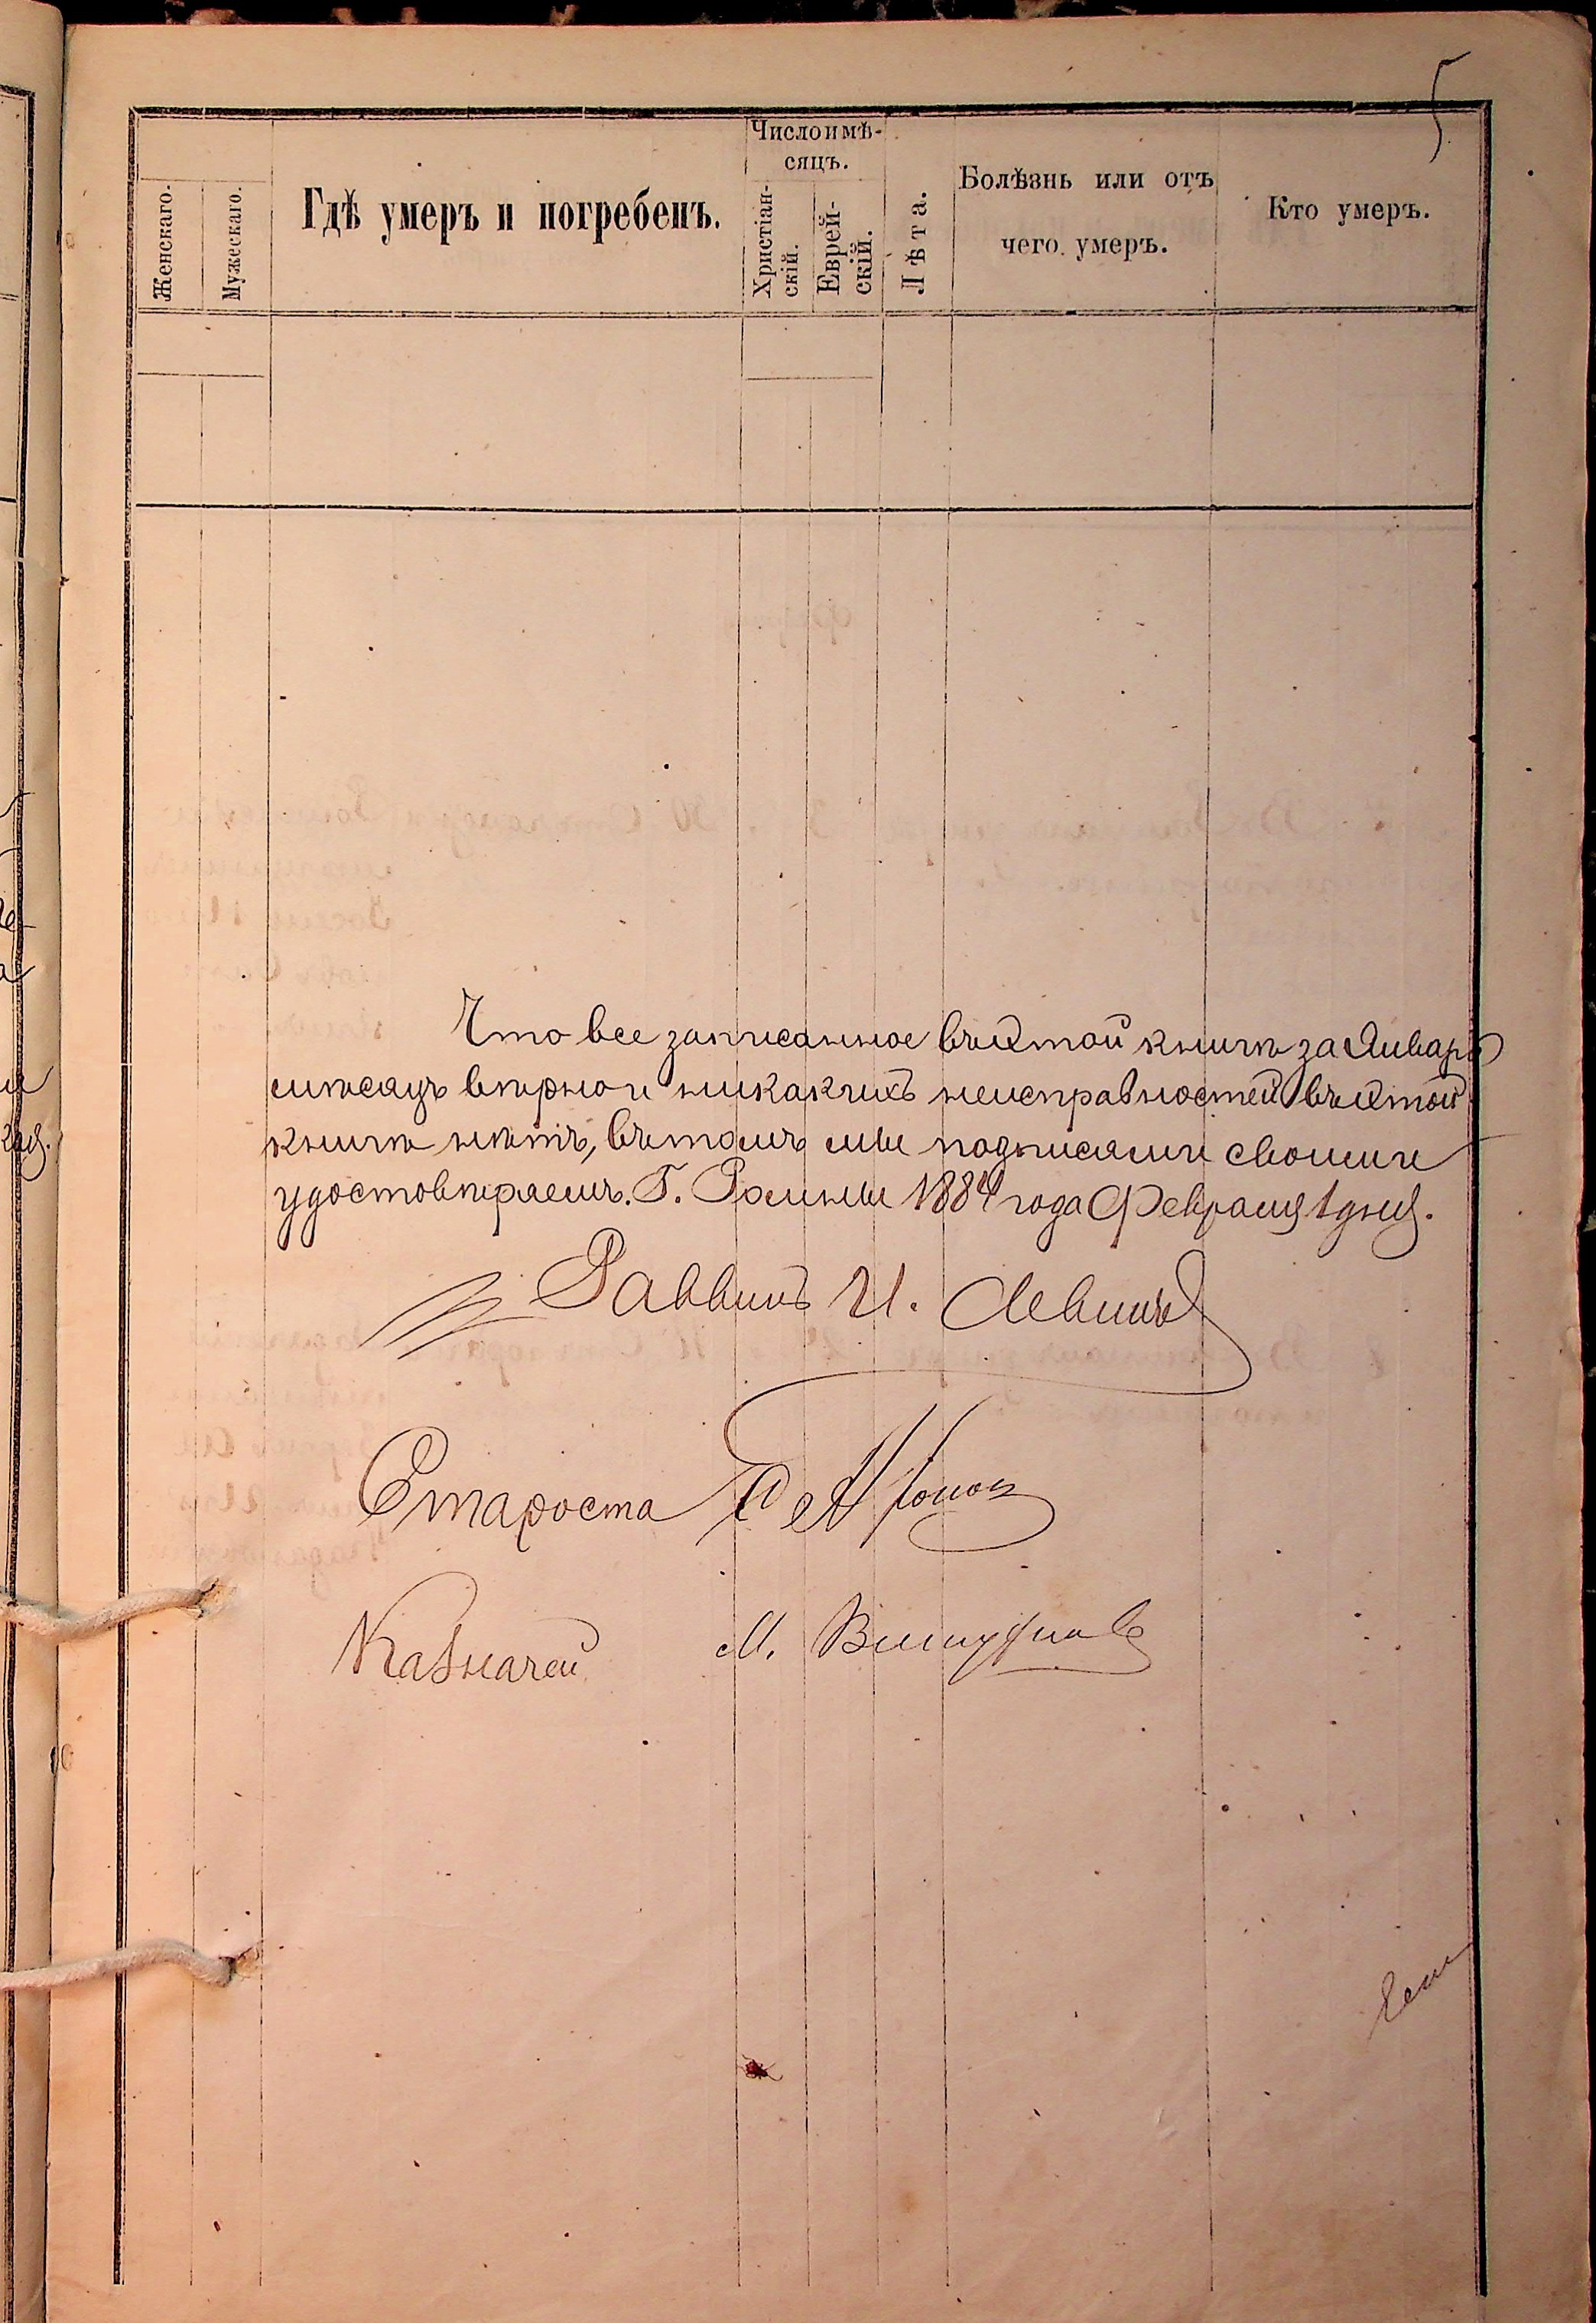 5
Женскаго.
Мужескаго.
Гдѣ умеръ и погребенъ.
Число и мѣ-
сяцъ.
Христіан-
скій.
Еврей-
скій.
Лѣта.
Болѣзнь или отъ
чего умеръ.
Кто умеръ.
Что все записанное въ этой книгѣ за Январь
мѣсяцъ вѣрно и никакихъ неисправностей въ этой
книгѣ нѣтъ, въ томъ мы подписями своими
удостовѣряемъ. Г. Ромны 1884 года Февраля 1 дня.
Раввинъ И. Левинъ
Староста
Казначей М.